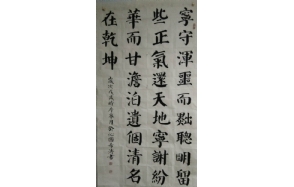 寧守渾噩而黜聰明留
些正氣還天地寧謝紛
華而甘澹泊遺個清名
在乾坤